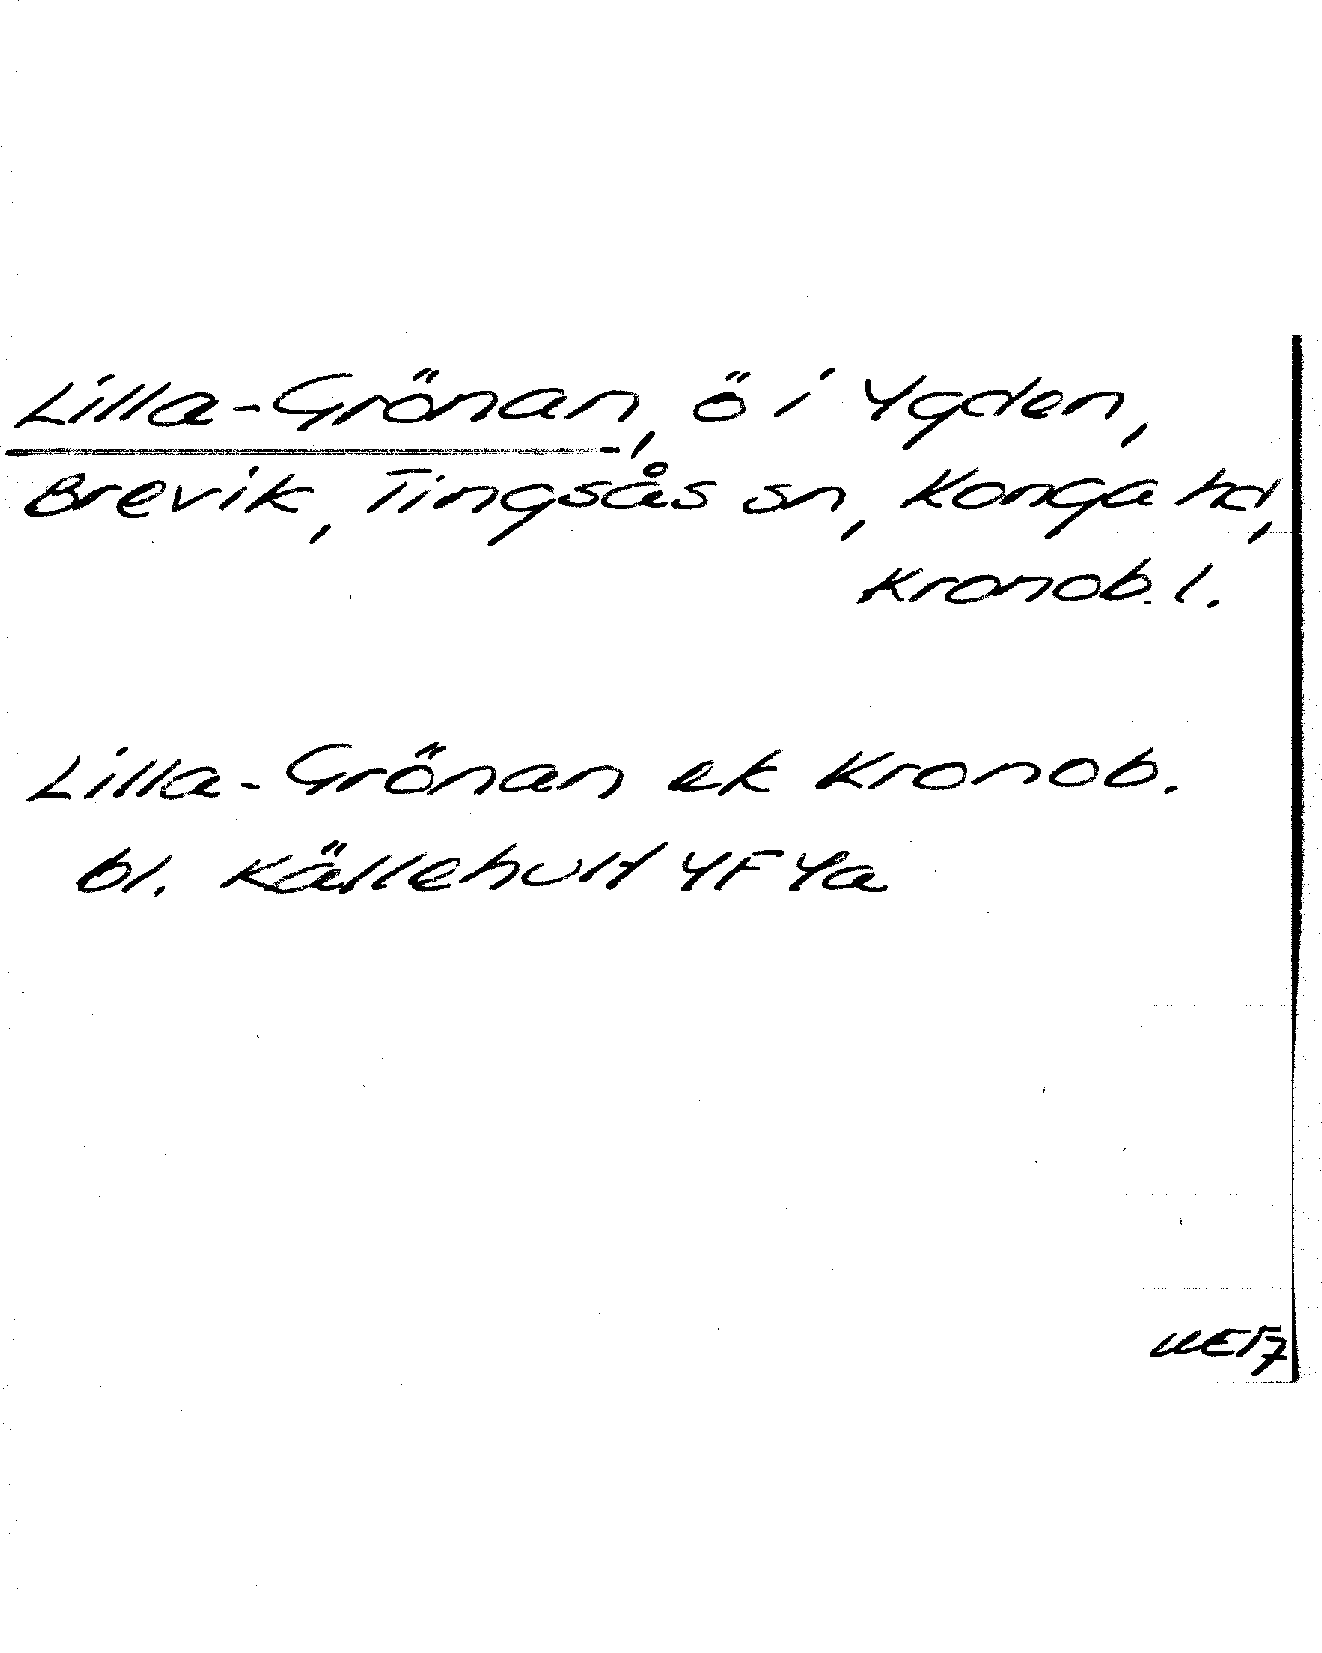 Lilla-Grönan, ö i Ygden,
Brevik, Tingsås sn, Konga hd,
Kronob. l.
Lilla-Grönan ek Kronob.
bl. Källehult 4F 4a